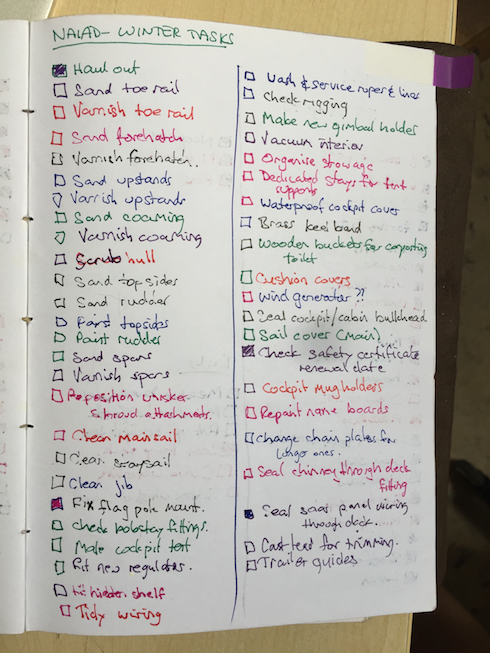 NAIAD - WINTER TASKS
Haul out
Sand toe rail
Varnish toe rail
Sand forehatch
Varnish forehatch.
Sand upstands
Varnish upstands
Sand coaming
Varnish coaming
Scrub hull
Sand topsides
Sand rudder
Paint topsides
Paint rudder
Sand spars
Varnish spars
Reposition whisker
shroud attachments.
Clean mainsail
Clean staysail
Clean jib
Fix flag pole mount.
Check bobstay fittings.
Make cockpit tent
Fit new regulator.
Fit shelf
Tidy wiring
Wash & service ropes & lines
Check rigging
Make new gimbal holder
Vacuum interior
Organise stowage
Dedicated stays for tent
supports
Waterproof cockpit cover
Brass keel band
Wooden buckets for composting
toilet
Cushion covers
Wind generator ??
Seal cockpit/cabin bulkhead
Sail cover (main)
Check safety certificate
renewal date
Cockpit mug holders
Repaint name boards
Change chain plates for
longer ones.
Seal chimney through deck
fitting
Seal solar panel wiring
through deck.
Cast lead for trimming.
Trailer guides